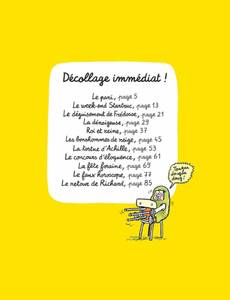 Décollage immédiat !
Le pari, page 5
Le week-end Starbuc, page 13
Le déguisement de Frédosse, page 21
La dérateuse, page 29
Roi et reine, page 37
Les bonshommes de neige, page 45
La tortue d'Achille, page 53
Le concours d'éloquence, page 61
La fête foraine, page 69
Le faux horoscope, page 77
Le netove de Richard, page 85